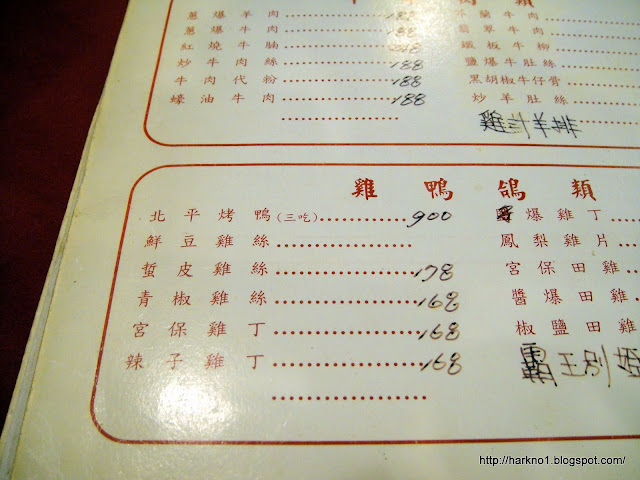 肉類
蔥爆羊肉 188
蔥爆牛肉 188
紅燒牛腩
炒牛肉絲 188
牛肉代粉 188
蠔油牛肉 188
芥蘭牛肉
翡翠牛肉
鐵板牛柳
鹽爆牛肚絲
黑胡椒牛仔骨
炒羊肚絲
雞汁羊排
雞鴨鴿類
北平烤鴨(三吃) 900
鮮豆雞絲
蜇皮雞絲 178
青椒雞絲 168
宮保雞丁 168
辣子雞丁 168
爆雞丁
鳳梨雞片
宮保田雞
醬爆田雞
椒鹽田雞
霸王別姬
http://harkno1.blogspot.com/